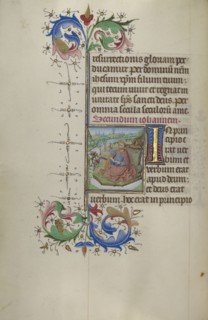 resurrectionis gloriam per
ducamur per dominum nrm
ihesum xpm filium tuum
qui tecum vivit et regnat in
unitate sps sancti deus. per
omnia secula seculorum. amen.
Secundum iohannem.
In prin
cipio e
rat ver
bum et
verbum erat
apud deum:
et deus erat
verbum. hoc erat in principio